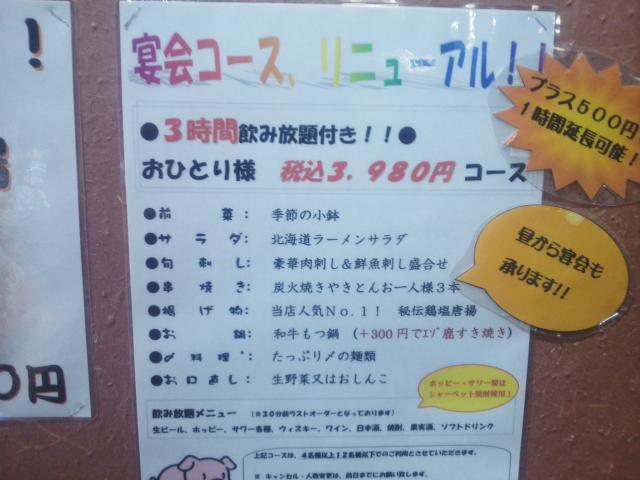 ！
円
宴会コース、リニューアル！！
プラス500円
1時間延長可能！
●3時間飲み放題付き！！●
おひとり様 税込3．980円 コース
●前菜： 季節の小鉢
●サラダ： 北海道ラーメンサラダ
●旬刺し： 豪華肉刺し＆鮮魚刺し盛合せ
●串焼き： 炭火焼きやきとんお一人様３本
●揚げ物： 当店人気Ｎｏ．１！ 秘伝鶏塩唐揚
●お鍋： 和牛もつ鍋（＋300円でｴｿﾞ鹿すき焼き）
●〆料理： たっぷり〆の麺類
●お口直し： 生野菜又はおしんこ
昼から宴会も
承ります!!
ホッピー・サワー類は
シャーベット焼酎使用！
飲み放題メニュー （※30分前ラストオーダーとなっております）
生ビール、ホッピー、サワー各種、ウィスキー、ワイン、日本酒、焼酎、果実酒、ソフトドリンク
上記コースは、4名様以上12名様以下でのご利用とさせていただきます。
※ キャンセル・人数変更は、前日までにお願い致します。